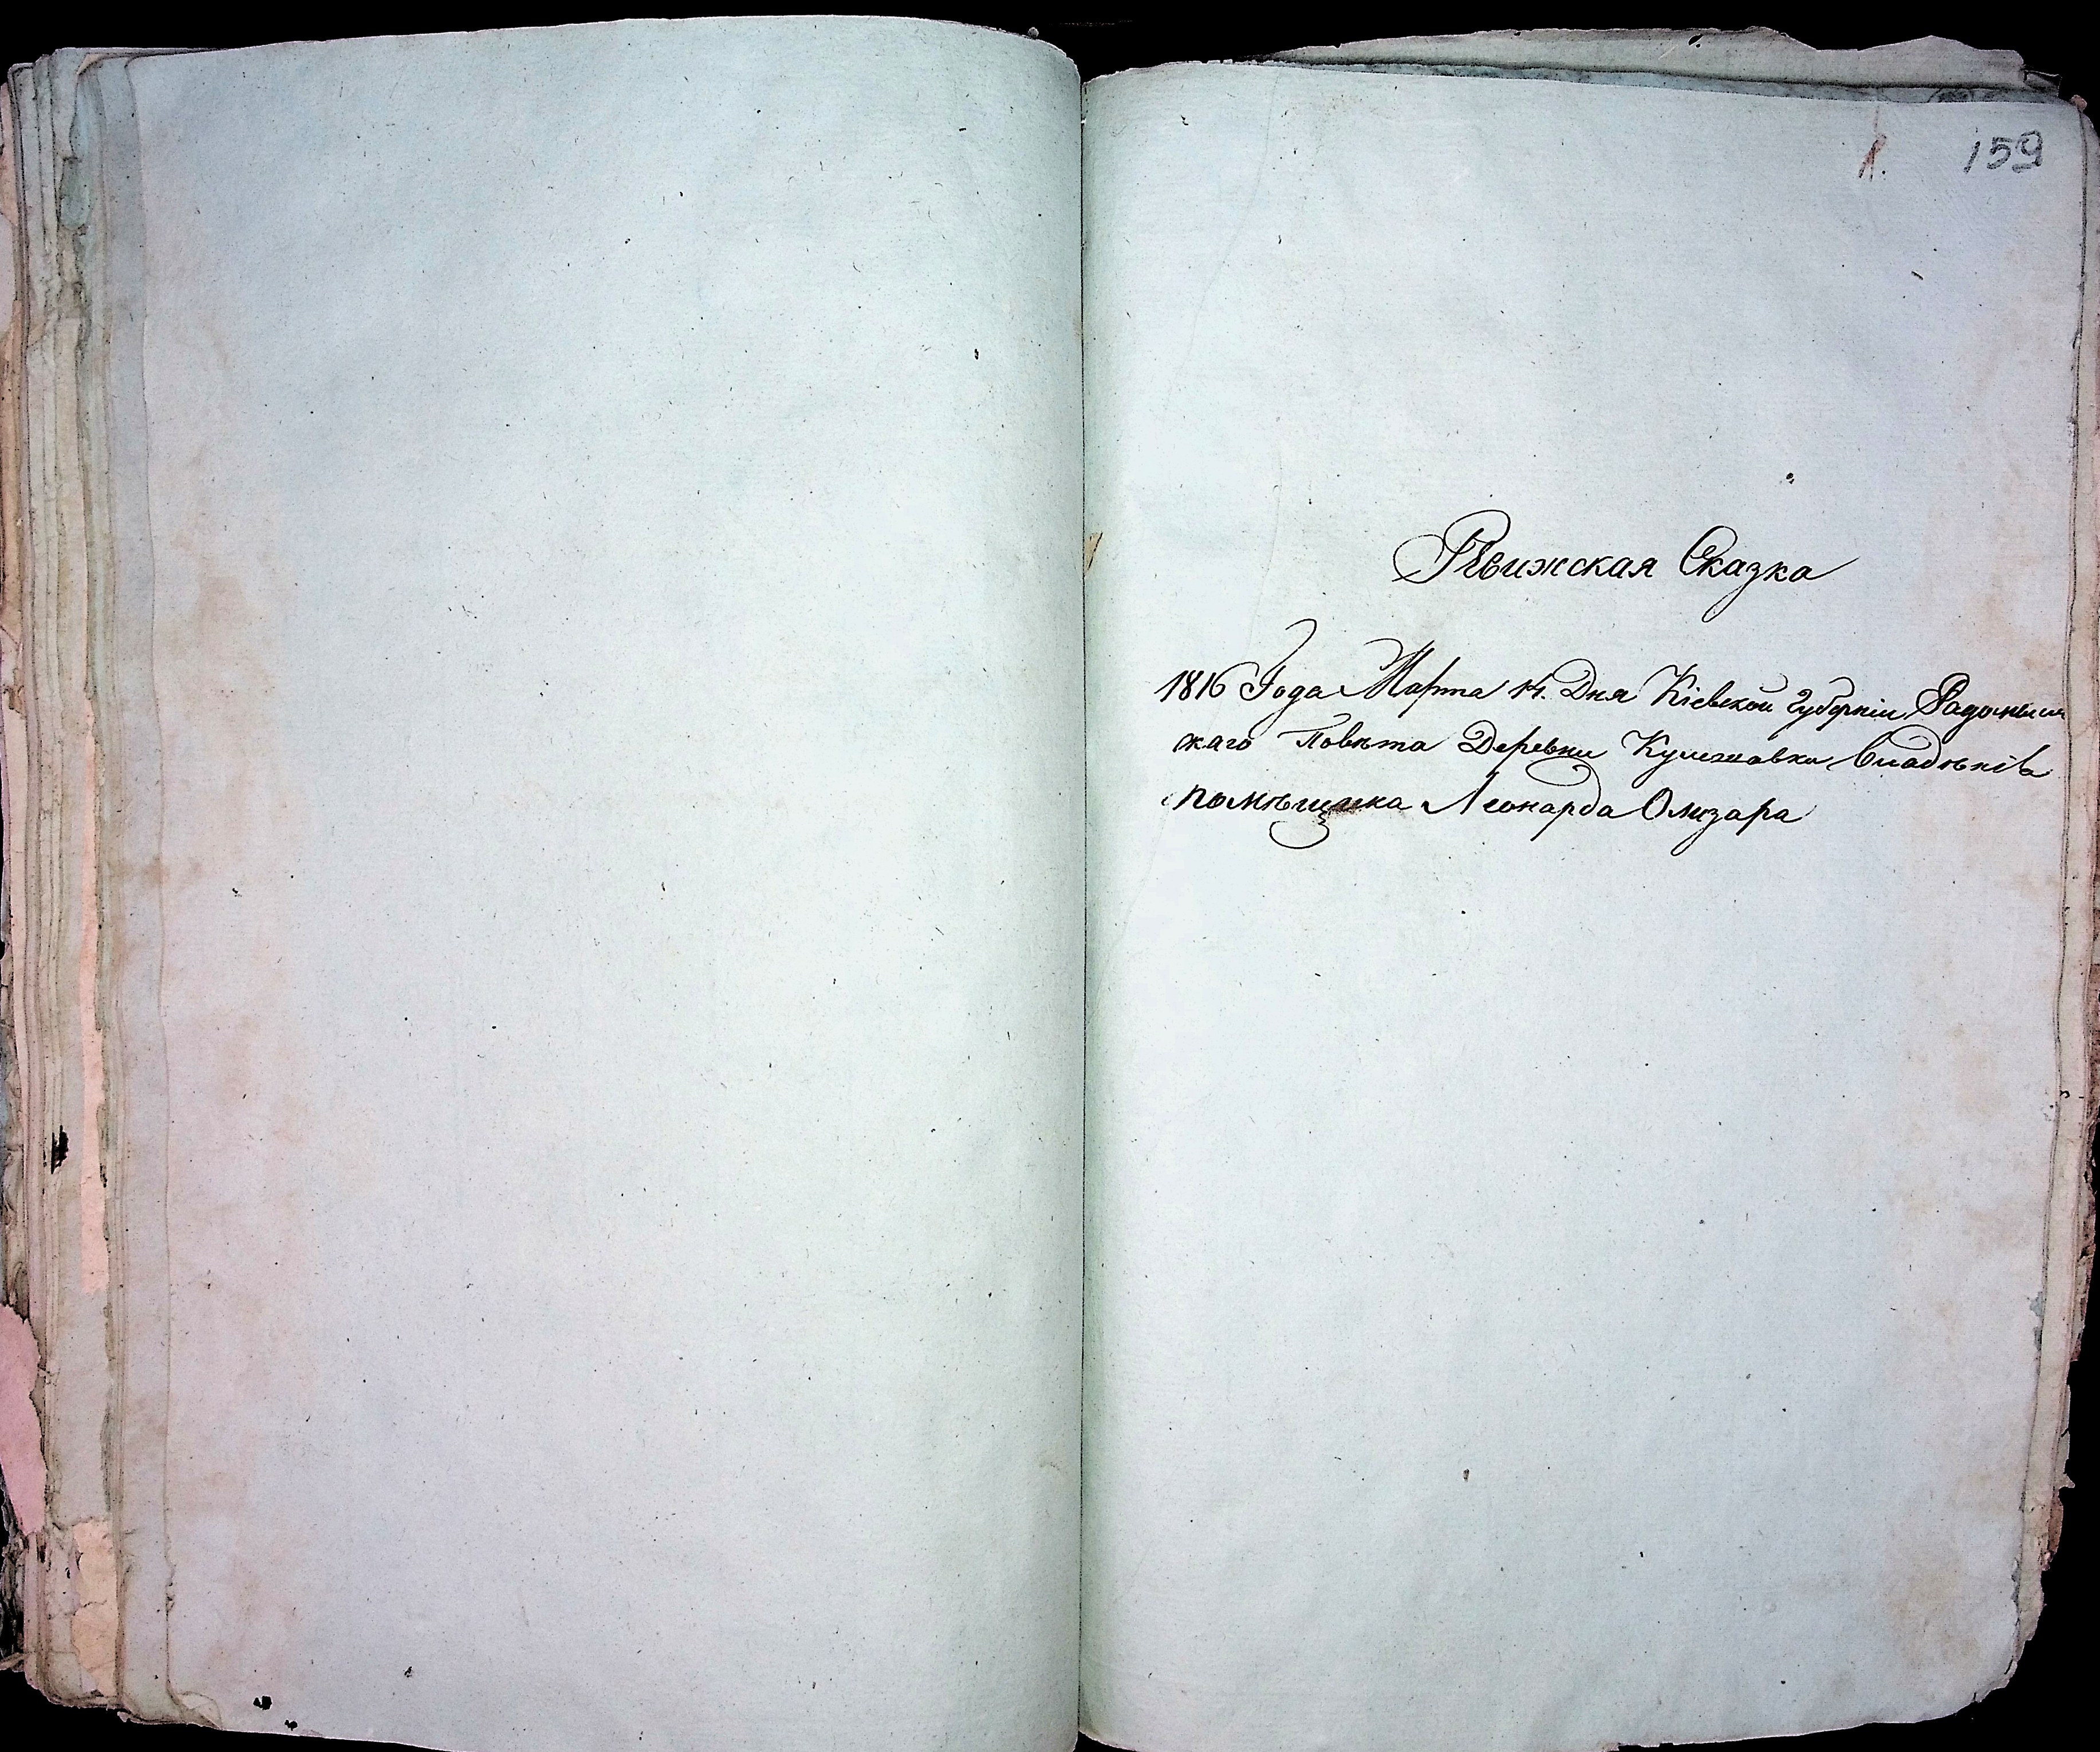 1. 159
Ревижская Сказка
1816 Года Марта 14. Дня Кіевской Губерніи Радомысл
скаго Повѣта Деревни Кулешовки Владѣнія
помѣщика Леонарда Олизара